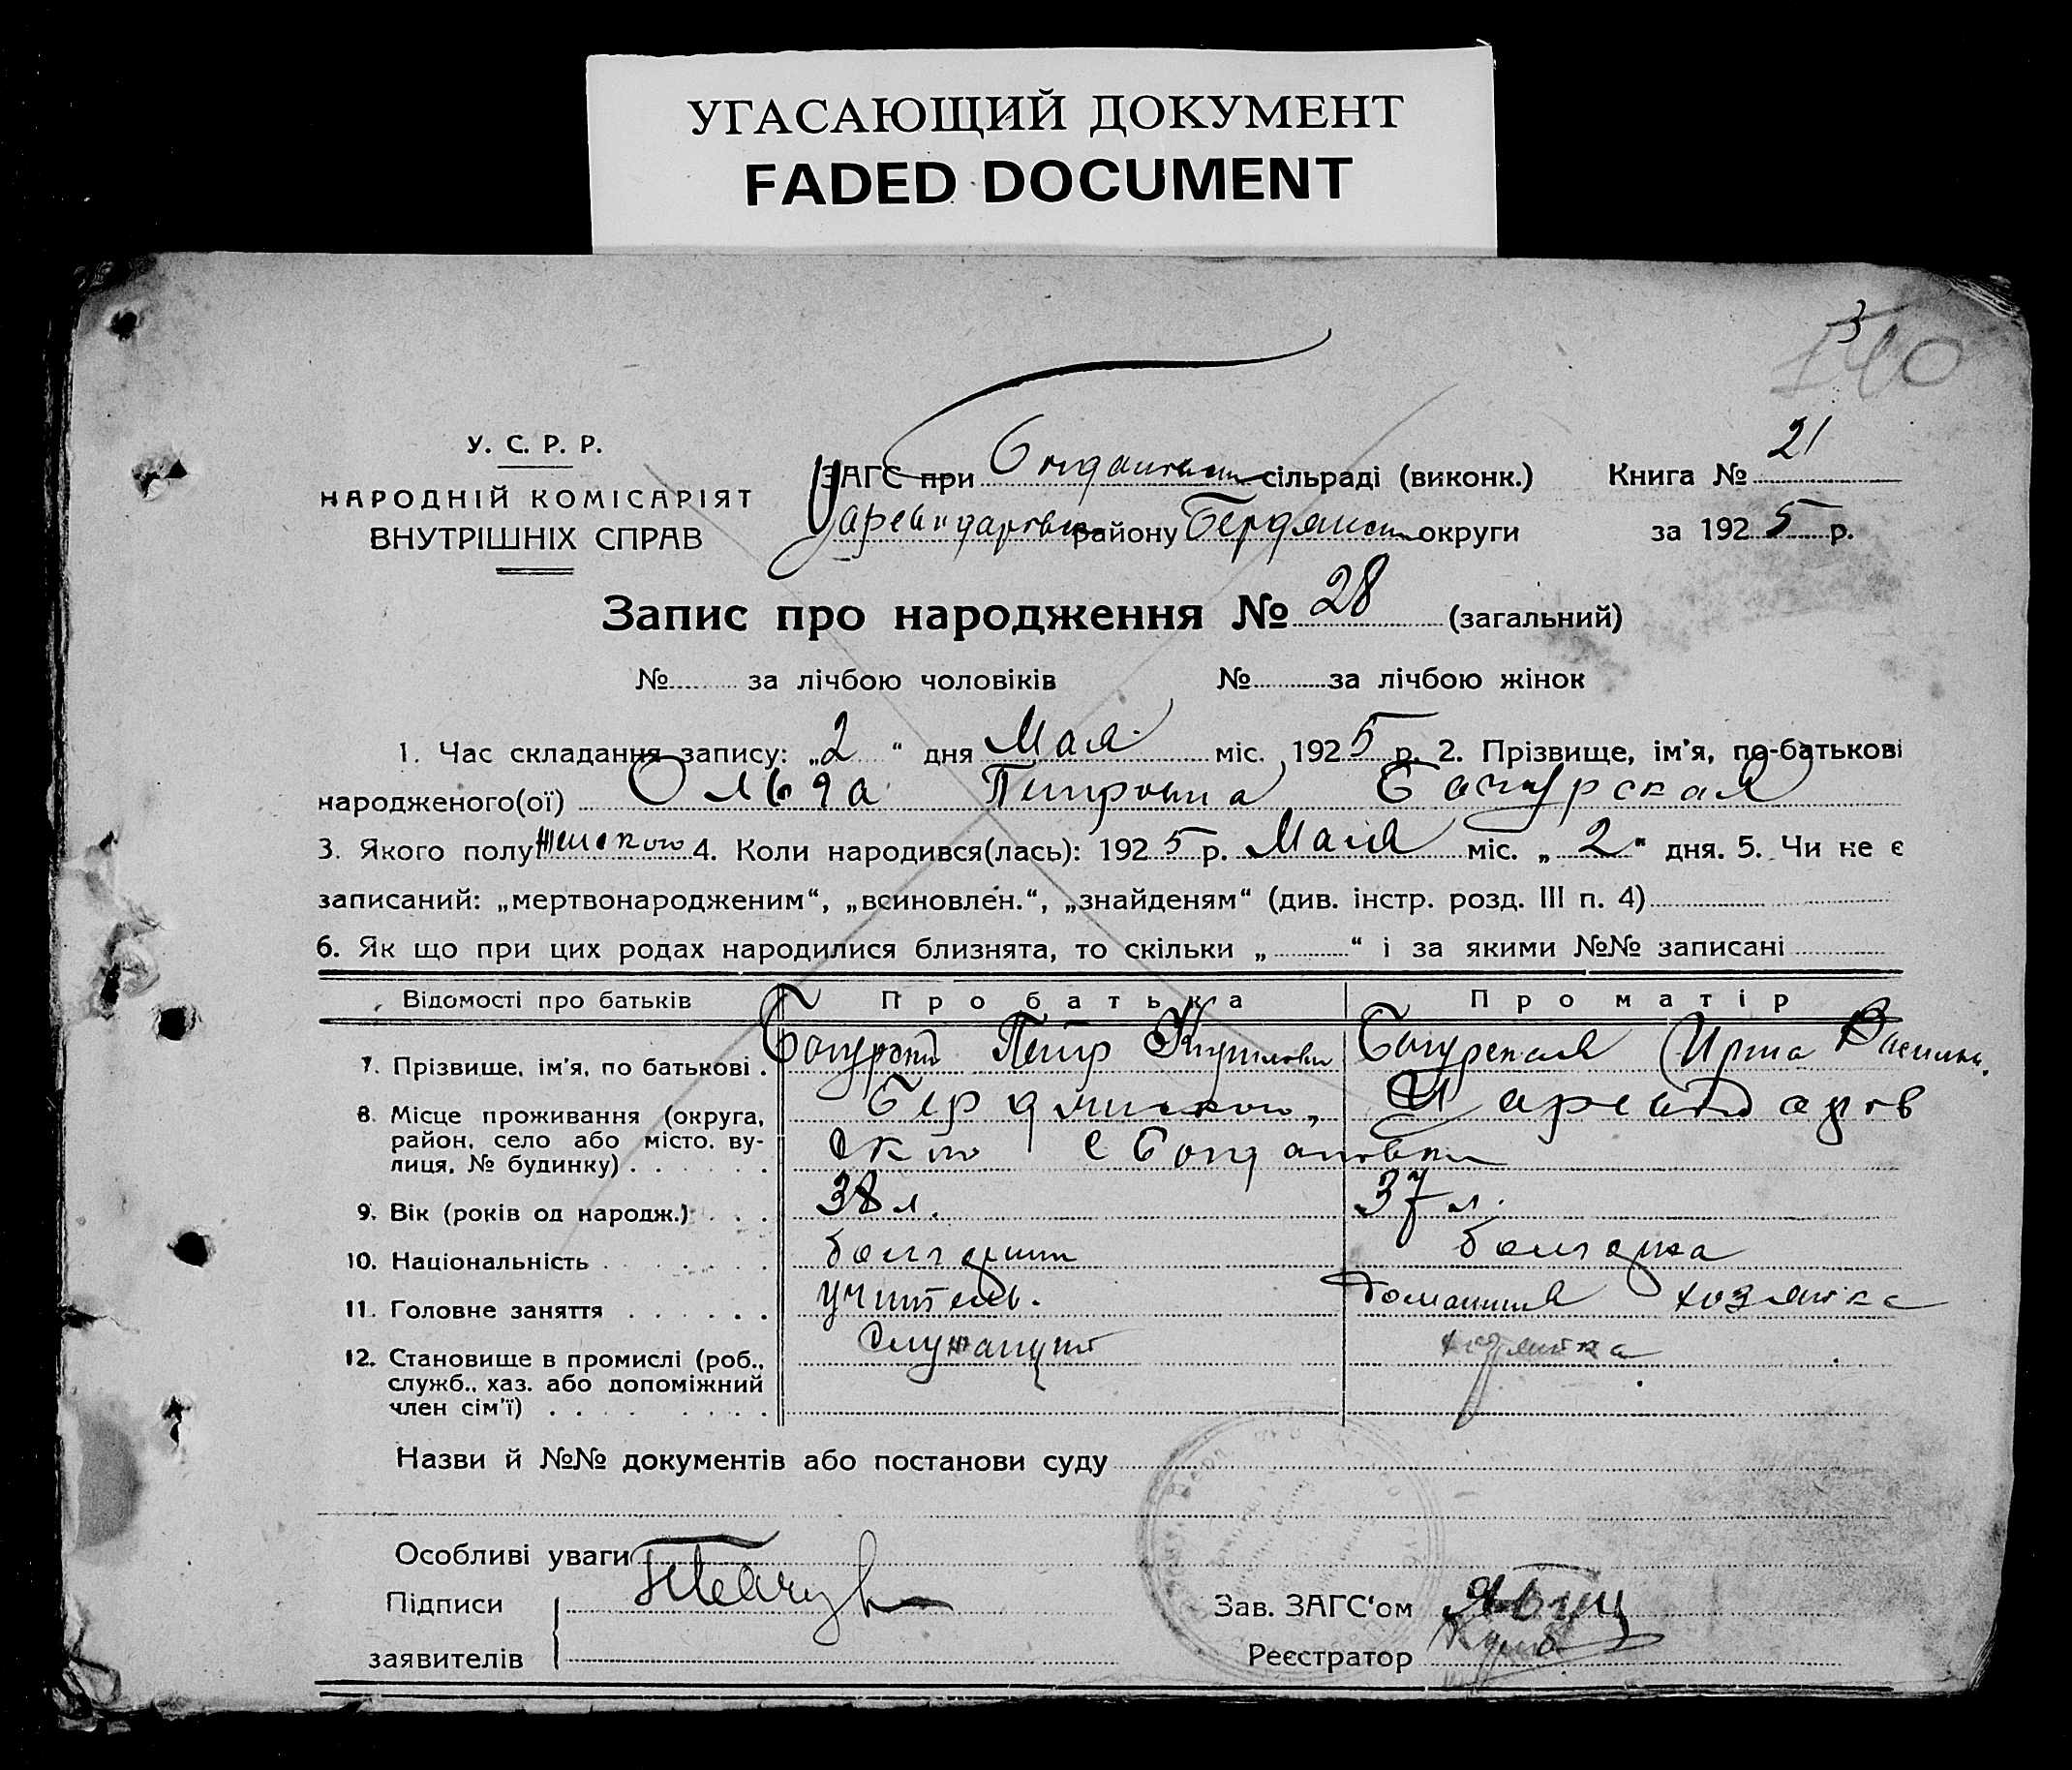 УГАСАЮЩИЙ ДОКУМЕНТ
FADED DOCUMENT
140
У. С. Р. Р.
НАРОДНІЙ КОМІСАРІЯТ
ВНУТРІШНІХ СПРАВ
ЗАГС при сільраді (виконк.)
району Бердянск округи
Книга № 21
за 1925 р.
Запис про народження № 28 (загальний)
№ за лічбою чоловіків № за лічбою жінок
1. Час складання запису: „2“ дня Мая міс. 1925 р. 2. Прізвище, ім'я, по-батькові
народженого(ої) Ольга Петровна Бачурская
3. Якого полу женского 4. Коли народився(лась): 1925 р. Мая міс. „2“ дня. 5. Чи не є
записаний: „мертвонародженим“, „всиновлен.“, „знайденям“ (див. інстр. розд. III п. 4)
6. Як що при цих родах народилися близнята, то скільки „ “ і за якими №№ записані
Відомості про батьків Про батька Про матір
7. Прізвище, ім'я, по батькові . Петр
8. Місце проживання (округа, Бердянского,
район, село або місто, ву- окто с Богдановки
лиця, № будинку) . . . . . .
9. Вік (років од народж.) . . . 38 л. 37 л.
10. Національність . . . . . . . болгарин болгарка
11. Головне заняття . . . . . . учитель. Домашняя хозяйка
12. Становище в промислі (роб., Служащий хозяйка
служб., хаз. або допоміжний
член сім'ї) . . . . . . . .
Назви й №№ документів або постанови суду
Особливі уваги
Підписи
заявителів
Зав. ЗАГС'ом
Реєстратор